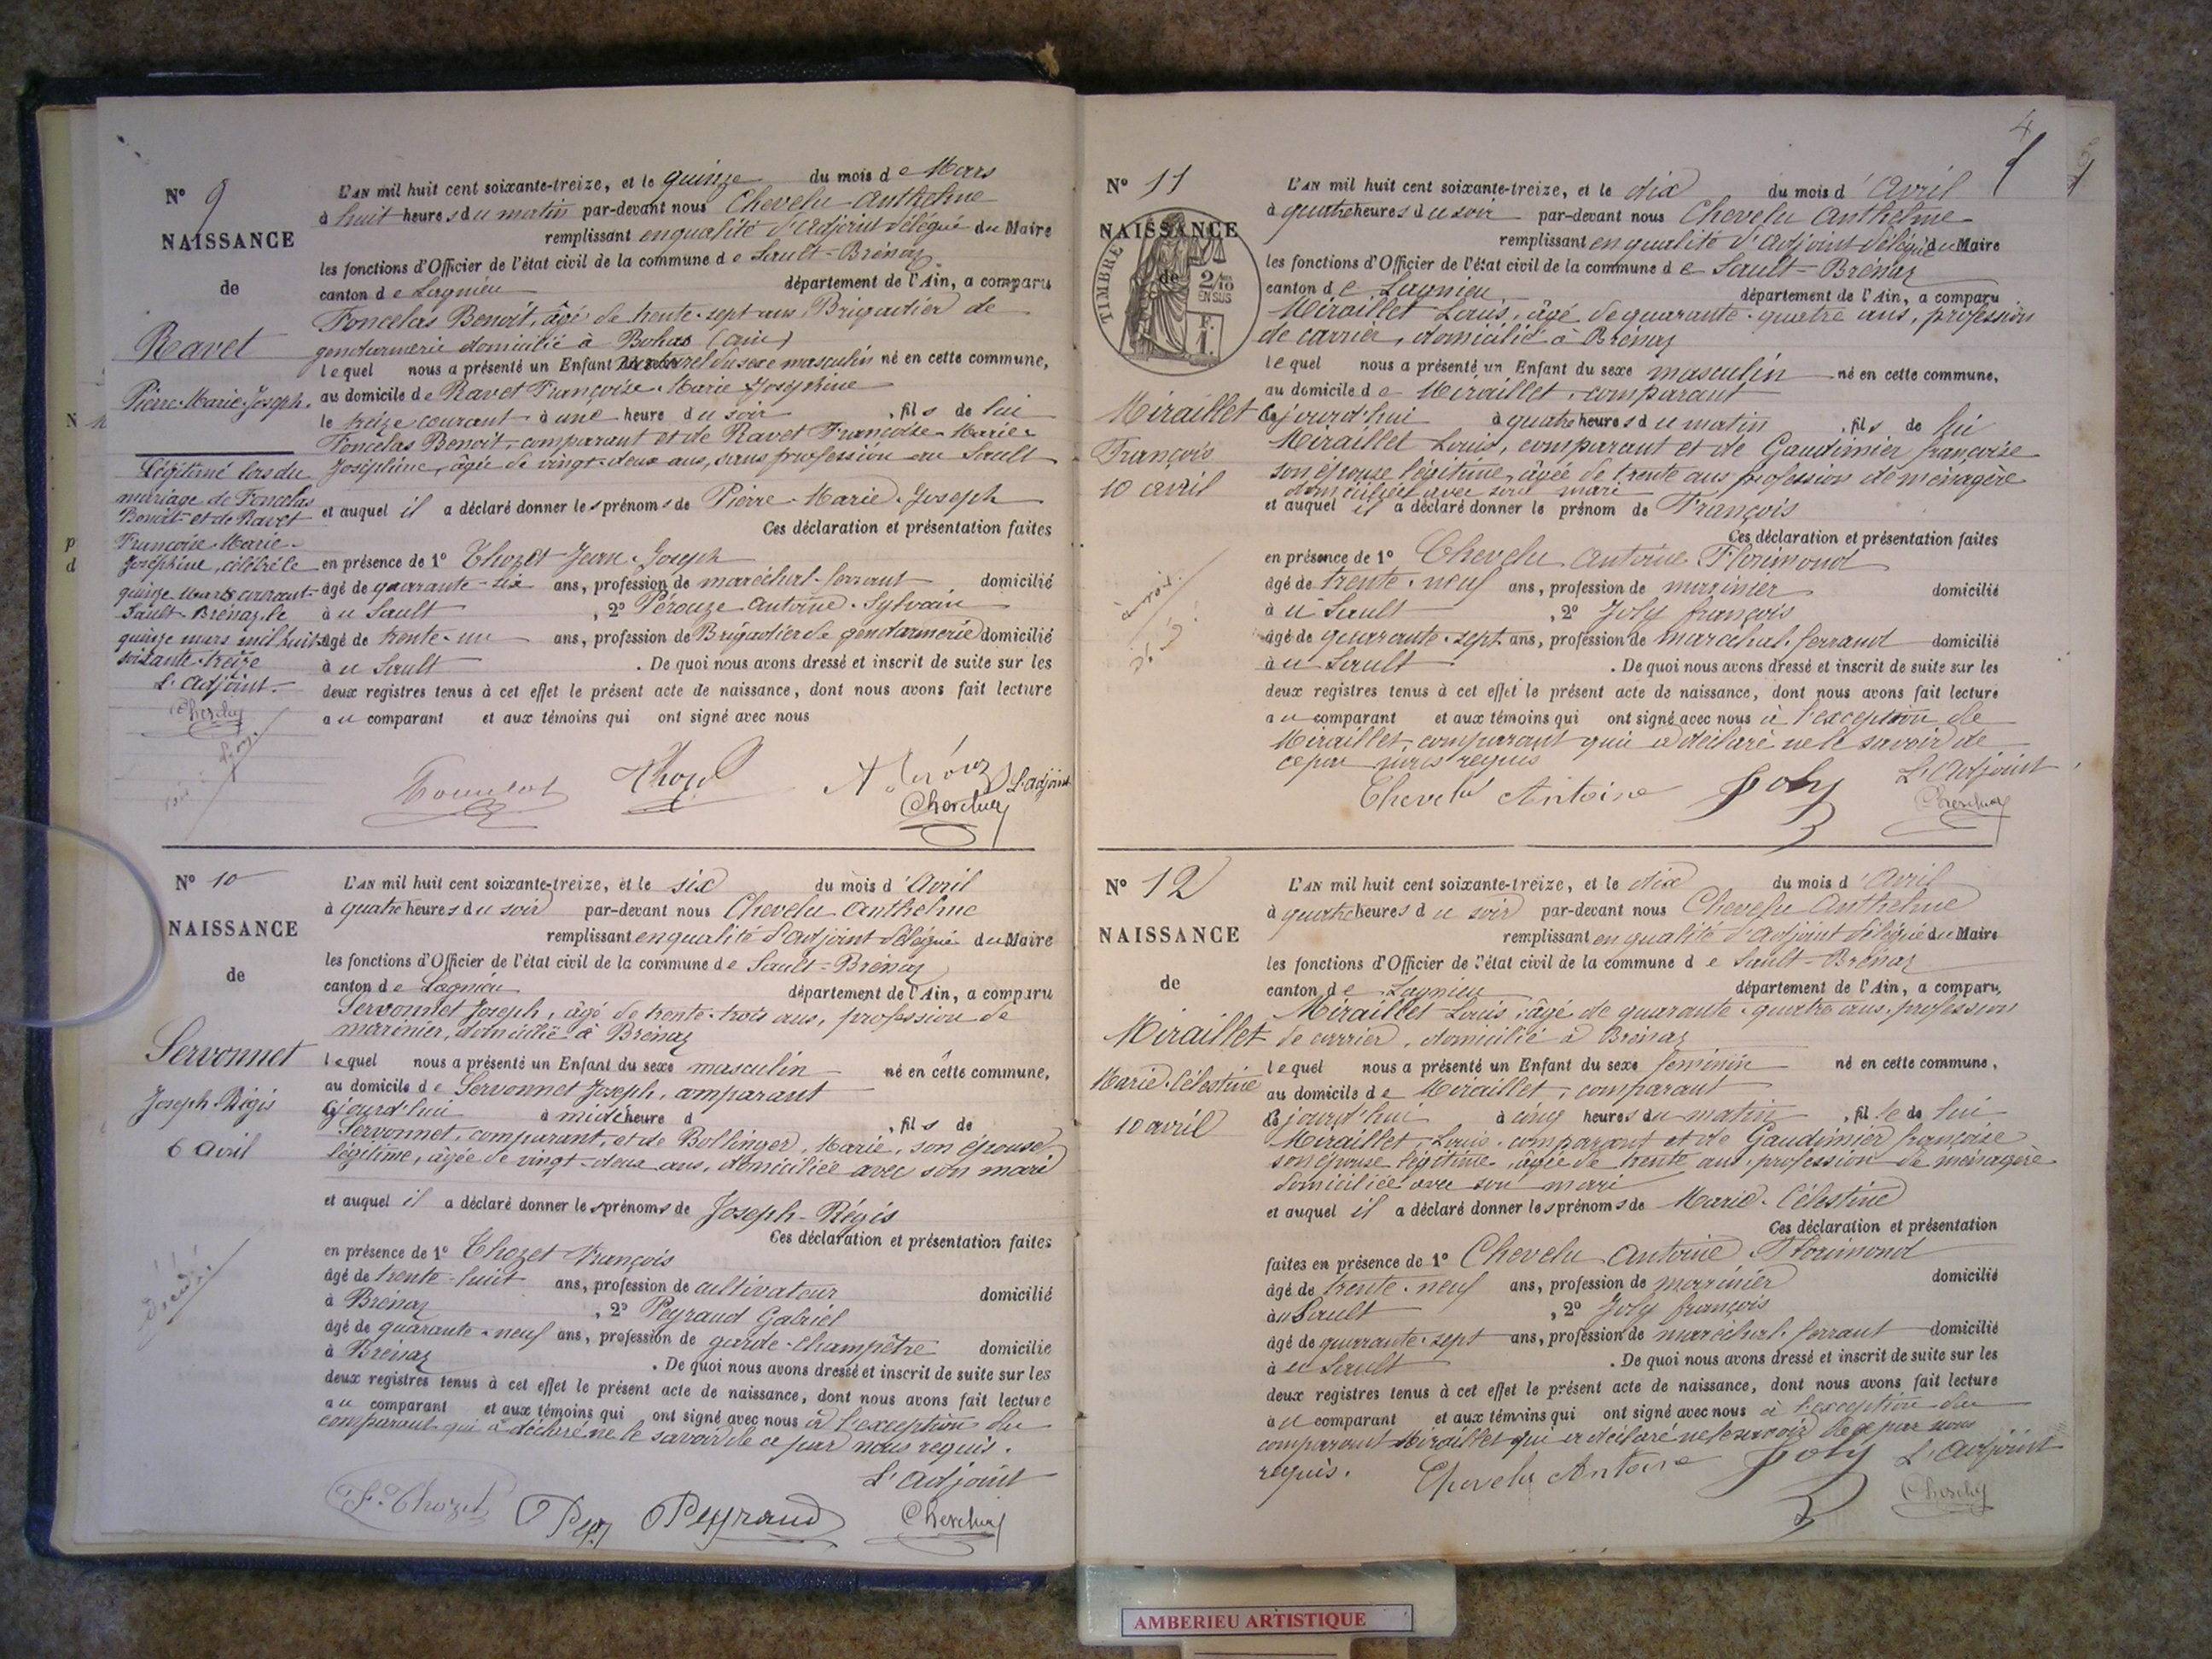 N° 9
NAISSANCE
de
Ravet
Pierre-Marie-Joseph.
Légitimé lors du
mariage de Foncelas
Benoit et de Ravet
Françoise-Marie-
Joséphine, célébré le
quinze mars courant
Sault-Brénaz, le
quinze mars mil huit
soixante-treize
L'Adjoint.
L'AN mil huit cent soixante-treize, et le quinze du mois de Mars
à huit heures du matin par-devant nous Chevelu Anthelme
remplissant en qualité d'Adjoint délégué du Maire
les fonctions d'Officier de l'état civil de la commune de Sault-Brénaz
canton de Lagnieu département de l'Ain, a comparu
Foncelas Benoit, âgé de trente-sept ans, Brigadier de
gendarmerie domicilié à Bohas (ain)
lequel nous a présenté un Enfant naturel du sexe masculin né en cette commune,
au domicile de Ravet Françoise-Marie Joséphine
le treize courant à une heure du soir, fils de lui
Foncelas Benoit, comparant et de Ravet Françoise-Marie-
Joséphine, âgée de vingt-deux ans, sans profession au Sault
et auquel il a déclaré donner les prénoms de Pierre-Marie-Joseph
Ces déclaration et présentation faites
en présence de 1° Thozet Jean-Joseph
âgé de quarante-six ans, profession de maréchal-ferrant domicilié
à u Sault, 2° Pérouze Antoine-Sylvain
âgé de trente-un ans, profession de Brigadier de gendarmerie domicilié
à u Sault. De quoi nous avons dressé et inscrit de suite sur les
deux registres tenus à cet effet le présent acte de naissance, dont nous avons fait lecture
au comparant et aux témoins qui ont signé avec nous
L'adjoint
N° 10
NAISSANCE
de
Servonnet
Joseph-Régis
6 Avril
L'AN mil huit cent soixante-treize, et le six du mois d'Avril
à quatre heures du soir par-devant nous Chevelu Anthelme
remplissant en qualité d'adjoint délégué du Maire
les fonctions d'Officier de l'état civil de la commune de Sault-Brénaz
canton de Lagnieu département de l'Ain, a comparu
Servonnet Joseph, âgé de trente-trois ans, profession de
marinier, domicilié à Brénaz
lequel nous a présenté un Enfant du sexe masculin né en cette commune,
au domicile de Servonnet Joseph, comparant
aujourd'hui à midi heure d , fils de
Servonnet, comparant, et de Bollinger, Marie, son épouse
légitime, âgée de vingt-deux ans, domiciliée avec son mari
et auquel il a déclaré donner les prénoms de Joseph-Régis
Ces déclaration et présentation faites
en présence de 1° Thozet François
âgé de trente-huit ans, profession de cultivateur domicilié
à Brénaz, 2° Peyraud Gabriel
âgé de quarante-neuf ans, profession de garde-champêtre domicilié
à Brénaz. De quoi nous avons dressé et inscrit de suite sur les
deux registres tenus à cet effet le présent acte de naissance, dont nous avons fait lecture
au comparant et aux témoins qui ont signé avec nous à l'exception du
comparant qui a déclaré ne le savoir de ce par nous requis.
L'adjoint
F. Thozet Peyraud
4
N° 11
NAISSANCE
de
TIMBRE
2/10
EN SUS
F.
1.
Miraillet
François
10 avril
L'AN mil huit cent soixante-treize, et le dix du mois d'Avril
à quatre heures du soir par-devant nous Chevelu Anthelme
remplissant en qualité d'adjoint délégué du Maire
les fonctions d'Officier de l'état civil de la commune de Sault-Brénaz
canton de Lagnieu département de l'Ain, a comparu
Miraillet Louis, âgé de quarante-quatre ans, profession
de carrier, domicilié à Brénaz
lequel nous a présenté un Enfant du sexe masculin né en cette commune,
au domicile de Miraillet, comparant
aujourd'hui à quatre heures du matin, fils de lui
Miraillet Louis, comparant et de Gaudimier françoise
son épouse légitime, âgée de trente ans profession de ménagère
domiciliée avec son mari
et auquel il a déclaré donner le prénom de François
Ces déclaration et présentation faites
en présence de 1° Chevelu Antoine Florimond
âgé de trente-neuf ans, profession de marinier domicilié
à u Sault, 2° Joly françois
âgé de quarante-sept ans, profession de maréchal-ferrand domicilié
à u Sault. De quoi nous avons dressé et inscrit de suite sur les
deux registres tenus à cet effet le présent acte de naissance, dont nous avons fait lecture
au comparant et aux témoins qui ont signé avec nous à l'exception de
Miraillet, comparant qui a déclaré ne le savoir de
ce par nous requis
L'Adjoint
Chevelu Antoine Joly
N° 12
NAISSANCE
de
Miraillet
Marie-Célestine
10 avril
L'AN mil huit cent soixante-treize, et le dix du mois d'Avril
à quatre heures du soir par-devant nous Chevelu Anthelme
remplissant en qualité d'adjoint délégué du Maire
les fonctions d'Officier de l'état civil de la commune de Sault-Brénaz
canton de Lagnieu département de l'Ain, a comparu,
Miraillet Louis, âgé de quarante-quatre ans, profession
de carrier, domicilié à Brénaz
lequel nous a présenté un Enfant du sexe féminin né en cette commune,
au domicile de Miraillet, comparant
aujourd'hui à cinq heures du matin, fille de lui
Miraillet, Louis, comparant et de Gaudimier françoise
son épouse légitime, âgée de trente ans, profession de ménagère
domiciliée avec son mari
et auquel il a déclaré donner les prénoms de Marie-Célestine
Ces déclaration et présentation
faites en présence de 1° Chevelu Antoine Florimond
âgé de trente-neuf ans, profession de marinier domicilié
à u Sault, 2° Joly françois
âgé de quarante-sept ans, profession de maréchal-ferrant domicilié
à u Sault. De quoi nous avons dressé et inscrit de suite sur les
deux registres tenus à cet effet le présent acte de naissance, dont nous avons fait lecture
au comparant et aux témoins qui ont signé avec nous à l'exception du
comparant Miraillet qui a déclaré ne le savoir de ce par nous
requis.
Chevelu Antoine Joly L'Adjoint
AMBERIEU ARTISTIQUE